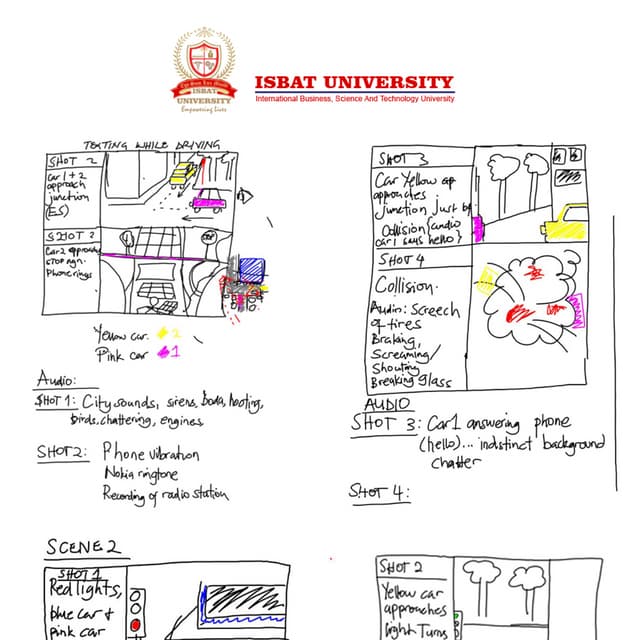 ISBAT
UNIVERSITY
Empowering Lives
ISBAT UNIVERSITY
International Business, Science And Technology University
TEXTING WHILE DRIVING
SHOT 2
Car 1 + 2
approach
junction
(ES)
SHOT 2
Car 2 approach
stop sign.
Phone rings
Yellow car #2
Pink car #1
Audio:
SHOT 1: City sounds, sirens, boda, hooting,
birds, chattering, engines
SHOT 2: Phone vibration
Nokia ringtone
Recording of radio station
SHOT 3
Car Yellow ap
approaches
Junction just b4
Collision (audio
car 1 says hello}
SHOT 4
Collision.
Audio: Screech
of tires
Braking,
Screaming/
Shouting
Breaking glass
AUDIO
SHOT 3: Car1 answering phone
(hello)... indistinct background
chatter
SHOT 4:
SCENE 2
SHOT 1
Red lights,
blue car +
pink car
SHOT 2
Yellow car
approaches
light Turns